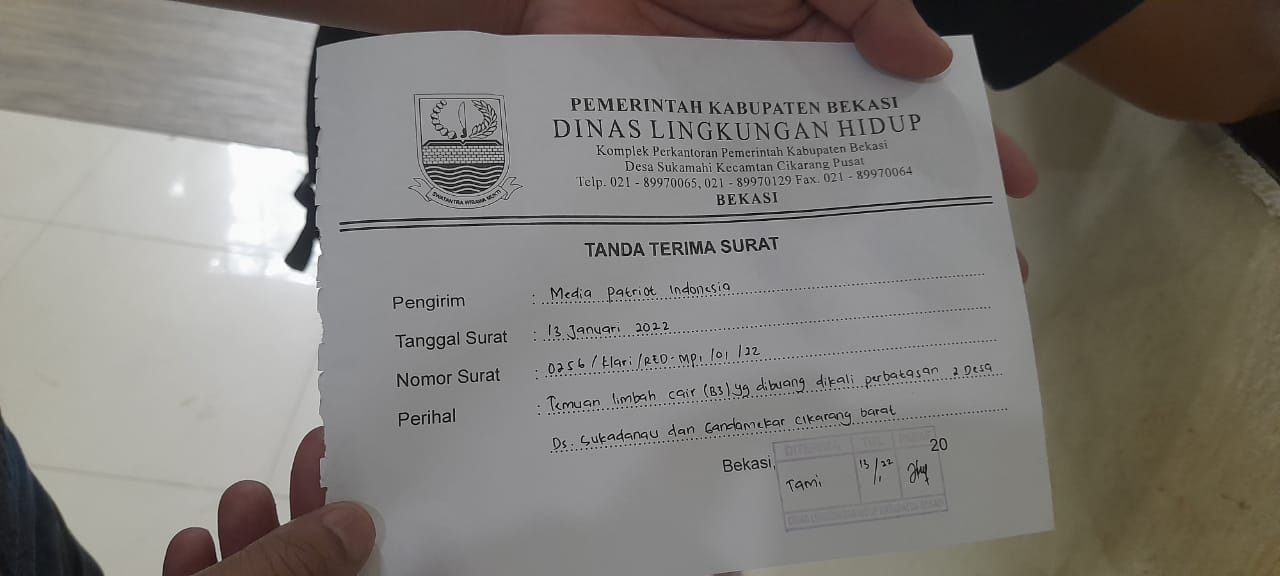 SWATANTRA WIBAWA MUKTI
PEMERINTAH KABUPATEN BEKASI
DINAS LINGKUNGAN HIDUP
Komplek Perkantoran Pemerintah Kabupaten Bekasi
Desa Sukamahi Kecamtan Cikarang Pusat
Telp. 021 - 89970065, 021 - 89970129 Fax. 021 - 89970064
BEKASI
TANDA TERIMA SURAT
Pengirim : Media Patriot Indonesia
Tanggal Surat : 13 Januari 2022
Nomor Surat : 0256/Klari/RED-MPI/01/22
Perihal : Temuan limbah cair (B3) yg dibuang dikali perbatasan 2 Desa
Ds. Sukadanau dan Gandamekar Cikarang barat
Bekasi, 20
DITERIMA TGL PARAF
Tami 13/1 22
DINAS LINGKUNGAN HIDUP KABUPATEN BEKASI